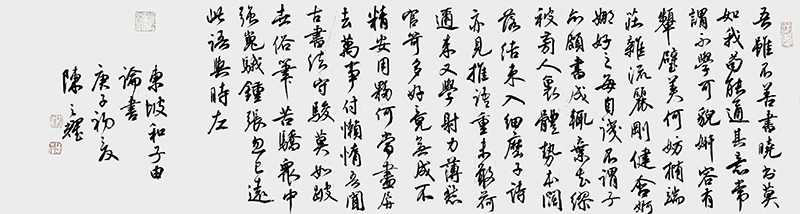 吾雖不善書曉書莫
如我苟能通其意常
謂不學可貌妍容有
顰璧美何妨橢端
莊雜流麗剛健含婀
娜好之每自譏不謂子
亦頗書成輒棄去繆
被旁人裹體勢本闊
落結束入細麼子詩
亦見推語重未敢荷
邇來又學射力薄愁
官笴多好竟無成不
精安用夥何當盡屏
去萬事付懶惰吾聞
古書法守駿莫如跛
世俗筆苦驕衆中
強嵬騀鍾張忽已遠
此語與時左
東坡和子由
論書
庚子初夏
陳之耀